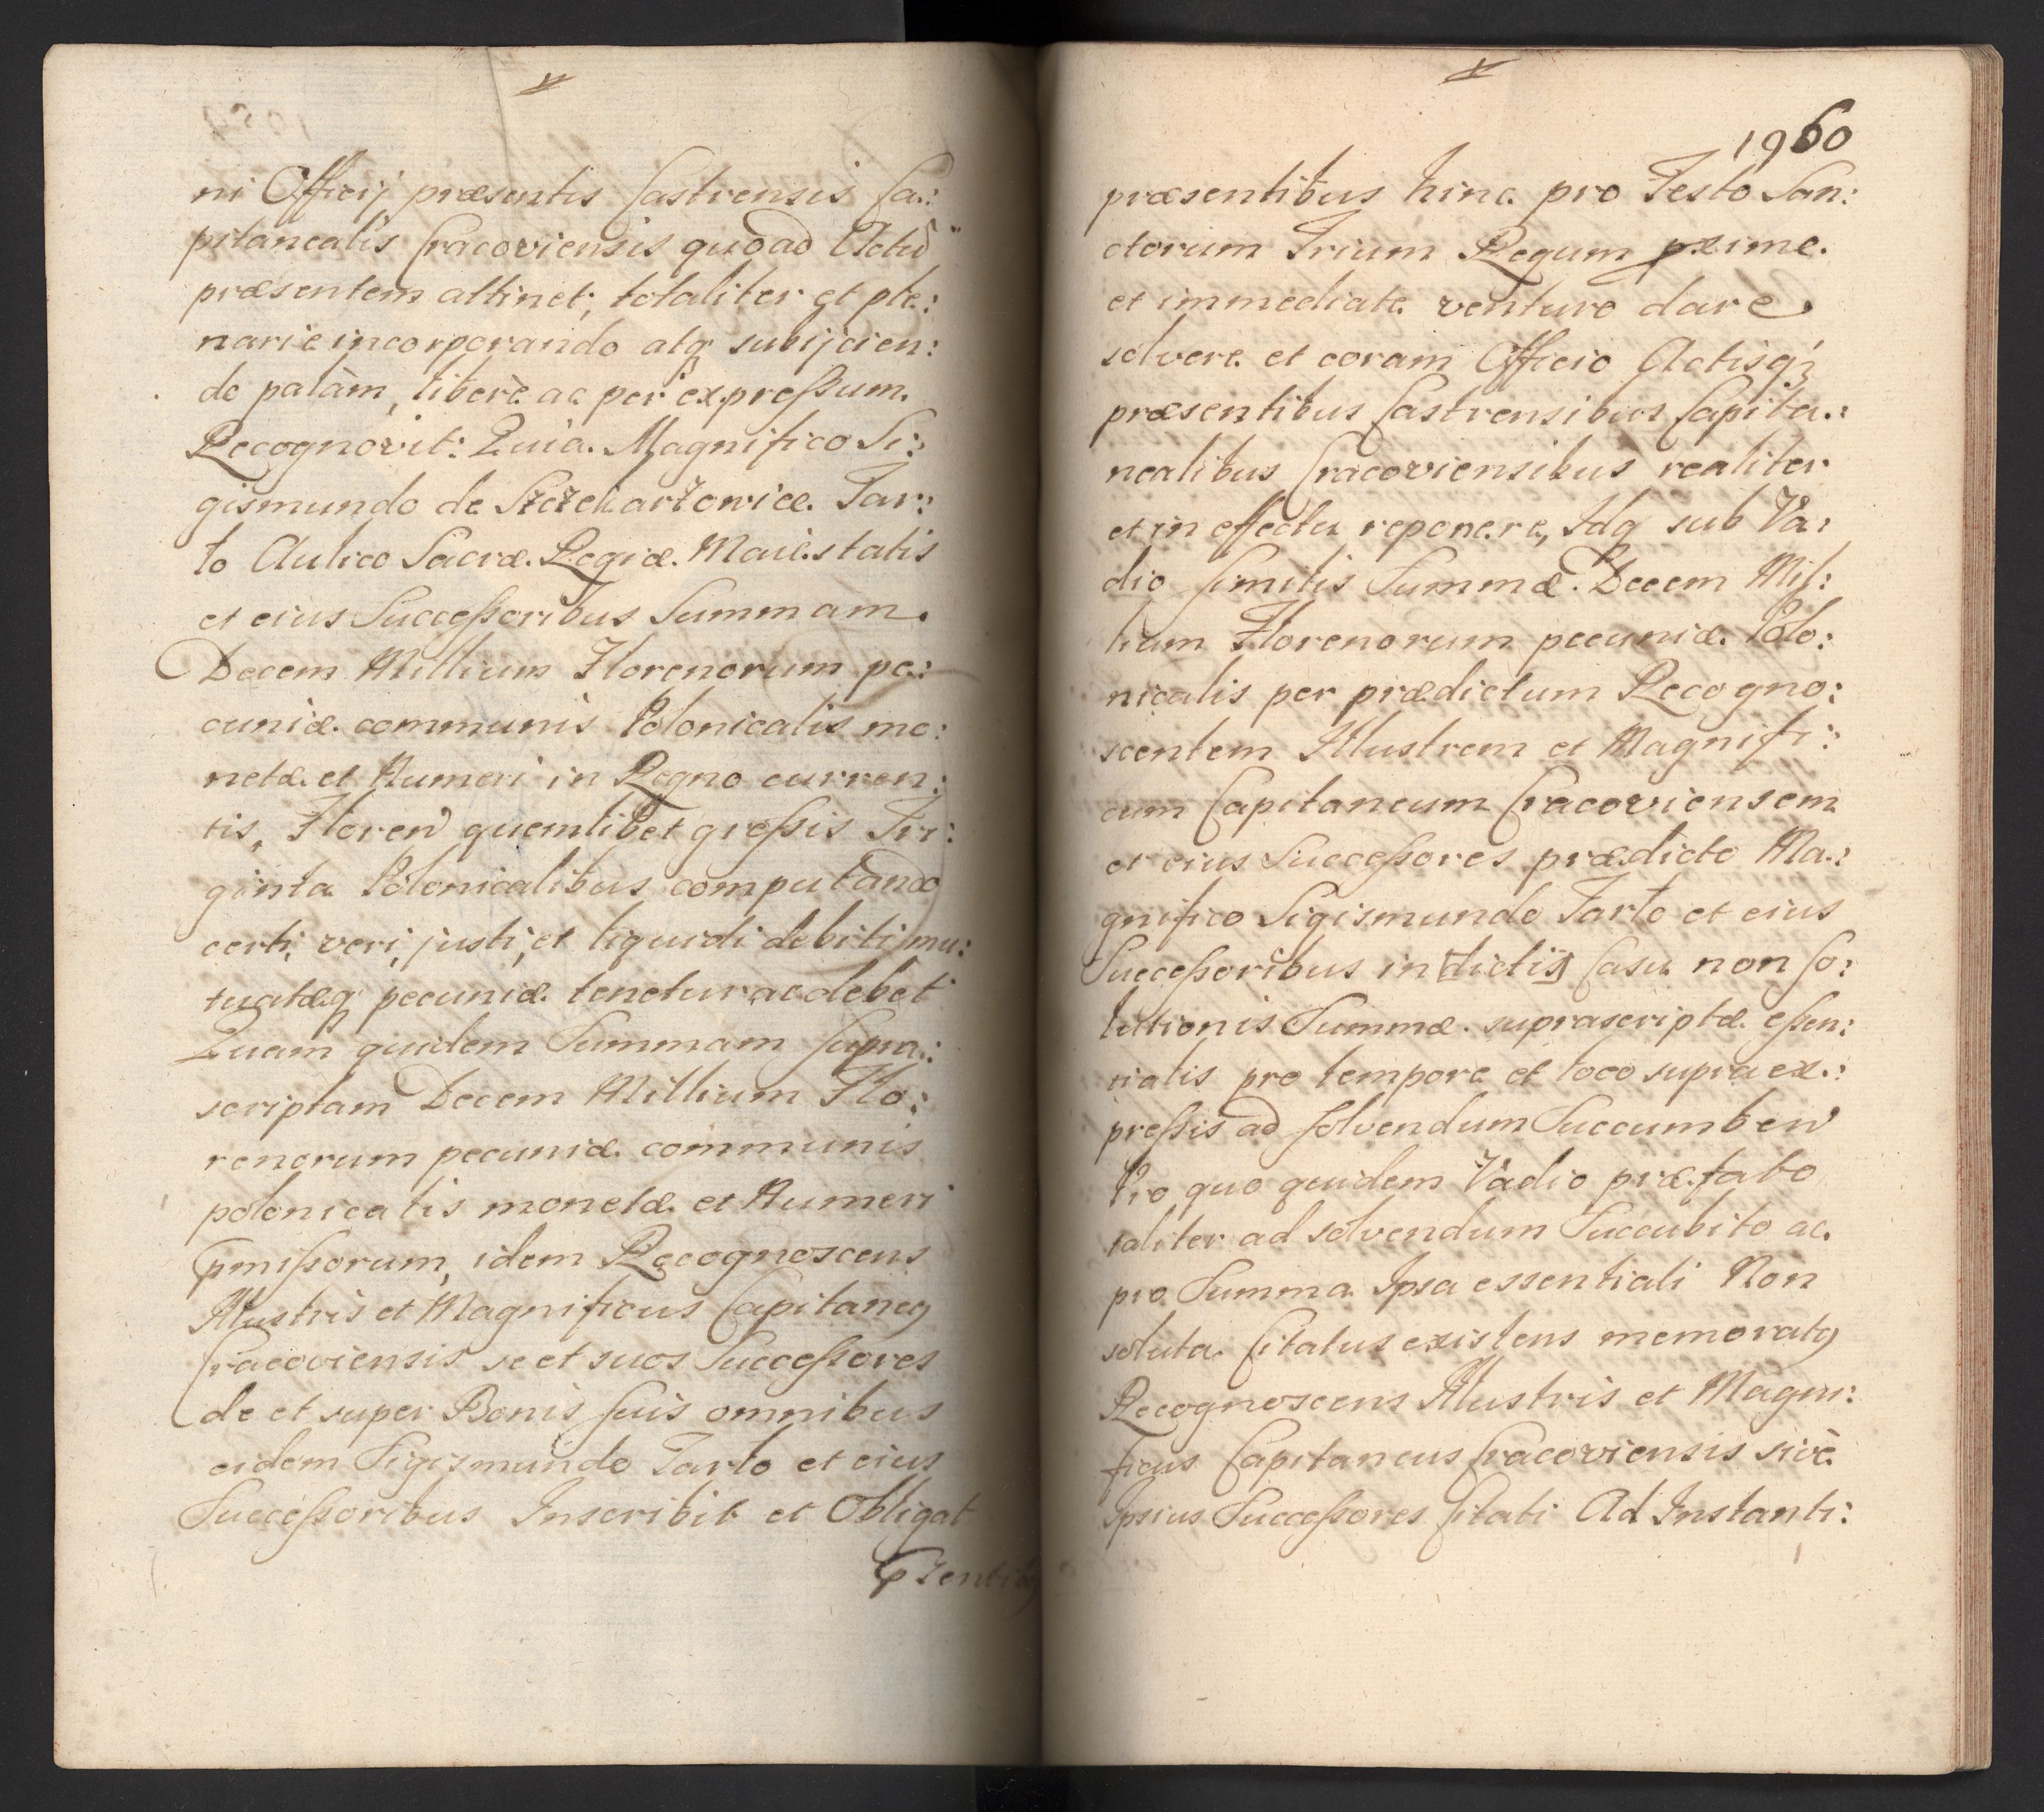 ni Officij præsentis Castrensis Ca:
pitanealis Cracoviensis quoad Actũ
præsentem attinet, totaliter et ple:
narie incorporando atq subijcien:
do palàm, liberè ac per expressum.
Recognovit: Quia Magnifico Si:
gismundo de Szczekarzowice Tar:
ło Aulico Sacræ Regiæ Maiestatis
et eius Successoribus Summam
Decem Millium Florenorum pe:
cuniæ communis Polonicalis mo:
netæ et Numeri in Regno curren:
tis, Floren̄ quemlibet grossis Tri:
ginta Polonicalibus computando
certi, veri, justi, et liquidi debiti mu:
tuatæq pecuniæ tenetur ac debet
Quam quidem Summam supra:
scriptam Decem Millium Flo:
renorum pecuniæ communis
polonicalis monetæ et Numeri
pmissorum, idem Recognoscens
Illustris et Magnificus Capitaneq
Cracoviensis se et suos Successores
de et super Bonis suis omnibus
eidem Sigismundo Tarło et eius
Successoribus Inscribit et Obligat
pzentibq
1960
præsentibus hinc pro Festo San:
ctorum Trium Regum pxime
et immediate venturo dare
solvere et coram Officio Actisq3
præsentibus Castrensibus Capita:
nealibus Cracoviensibus realiter
et in effectu reponere, Idq sub Va:
dio similis Summæ Decem Mil:
lium Florenorum pecuniæ Polo:
nicalis per prædictum Recogno:
scentem Illustrem et Magnifi:
cum Capitaneum Cracoviensem
et eius Successores prædicto Ma:
gnifico Sigismundo Tarło et eius
Successoribus in [dictis] Casu non so:
lutionis Summæ suprascriptæ essen:
tialis pro tempore et loco supraex:
pressis ad solvendum Succumben̄
Pro quo quidem Vadio præfato
taliter ad solvendum Succubito ac
pro Summa Ipsa essentiali Non
soluta Citatus existens memoratq
Recognoscens Illustris et Magni:
ficus Capitaneus Cracoviensis sivè
Ipsius Successores Citati Ad Instanti: